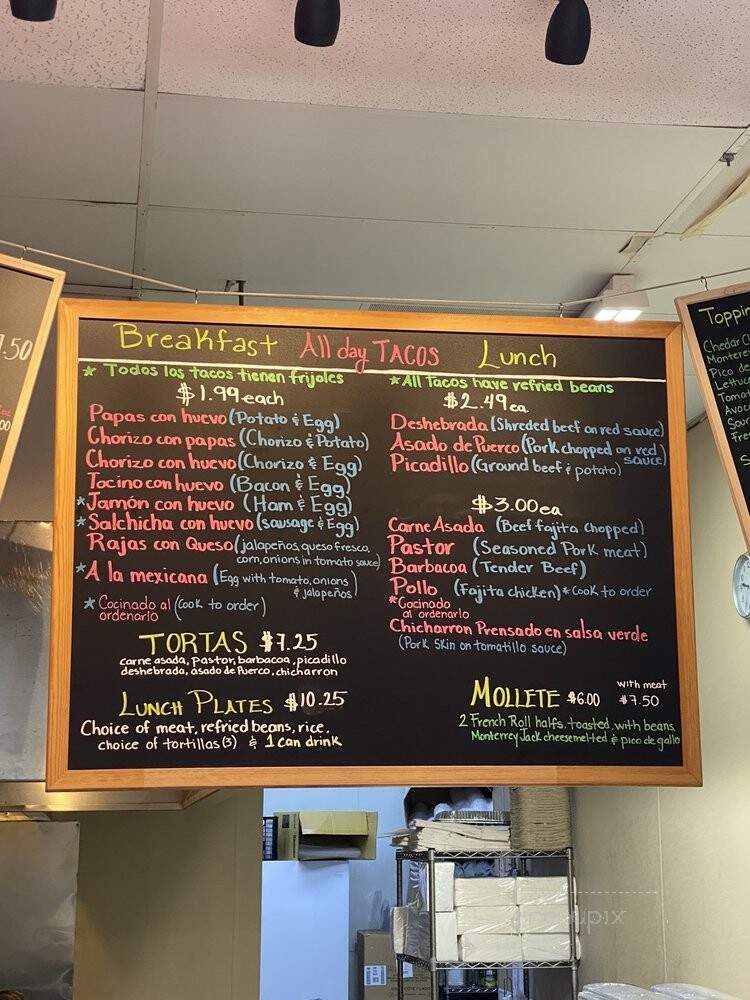 Breakfast All day TACOS Lunch
* Todos los tacos tienen frijoles
$1.99 each
Papas con huevo (Potato & Egg)
Chorizo con papas (Chorizo & Potato)
Chorizo con huevo (Chorizo & Egg)
Tocino con huevo (Bacon & Egg)
*Jamón con huevo (Ham & Egg)
*Salchicha con huevo (sausage & Egg)
Rajas con Queso (jalapeños, queso fresco,
corn, onions in tomato sauce)
*A la mexicana (Egg with tomato, onions
& jalapeños)
*Cocinado al (cook to order)
ordenarlo
TORTAS $7.25
carne asada, pastor, barbacoa, picadillo
deshebrada, asado de Puerco, chicharron
LUNCH PLATES $10.25
Choice of meat, refried beans, rice.
choice of tortillas (3) & 1 can drink
*All Tacos have refried beans
$2.49 ea
Deshebrada (Shreded beef on red sauce)
Asado de Puerco (Pork chopped on red
sauce)
Picadillo (Ground beef & potato)
$3.00 ea
Carne Asada (Beef fajita chopped)
Pastor (Seasoned Pork meat)
Barbacoa (Tender Beef)
Pollo (Fajita chicken) *cook to order
*Cocinado
al ordenarlo
Chicharron Prensado en salsa verde
(Pork Skin on tomatillo sauce)
with meat
MOLLETE $6.00 $7.50
2 French Roll halfs, toasted, with beans
Monterrey Jack cheese melted & pico de gallo
.50
00
Toppin
Chedar C
Montere
Pico de
Lettu
Tomat
Avoc
Sour
Fre